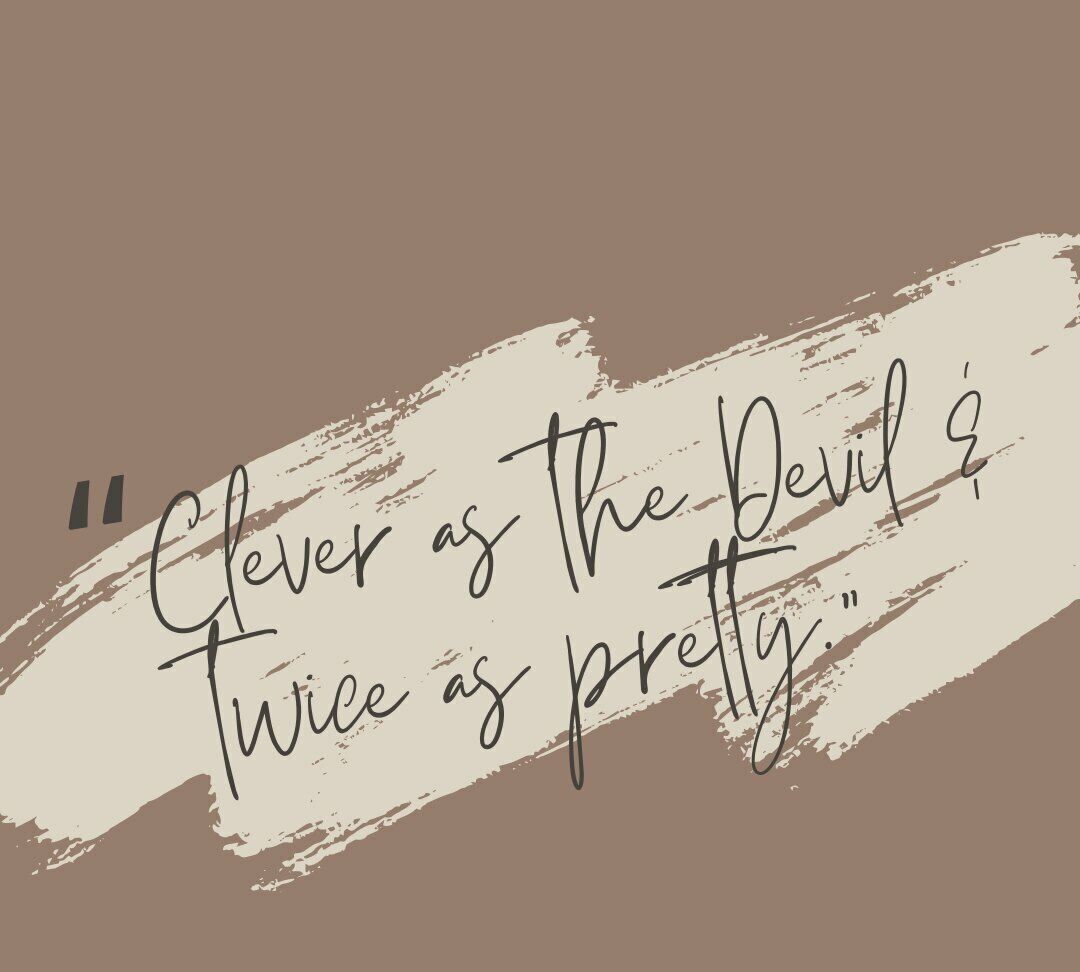 "Clever as the Devil &
twice as pretty."